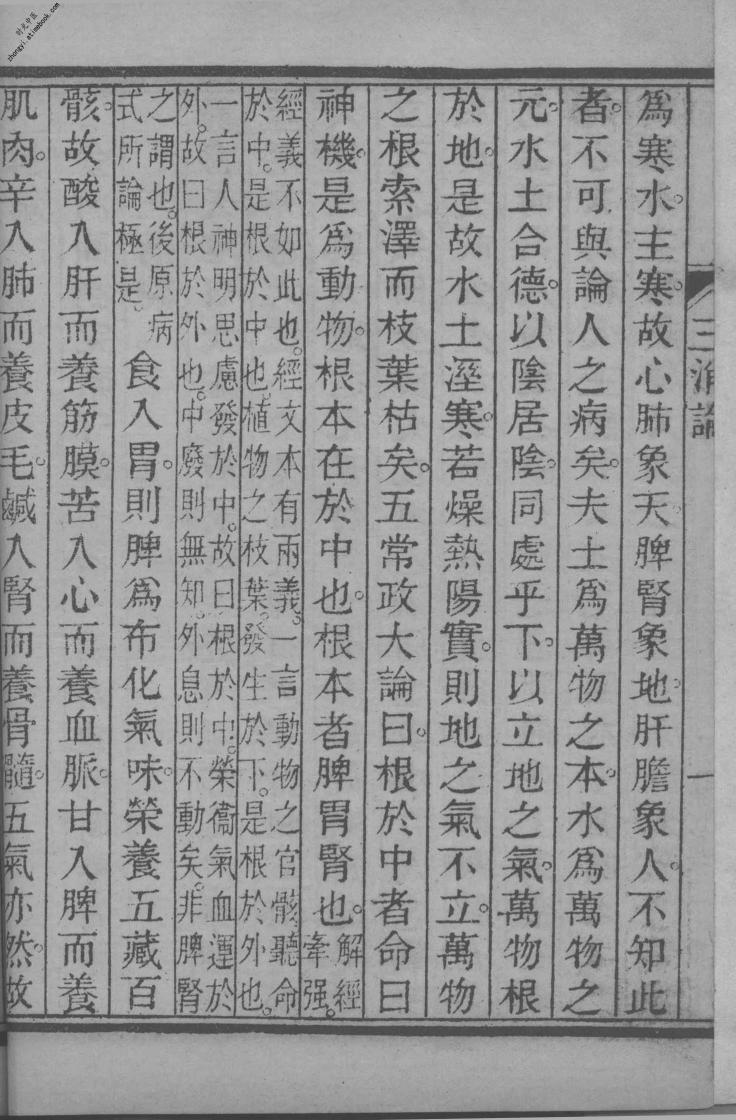 时光中医
zhongyi.atimebook.com
三消論
一
爲寒水。主寒。故心肺象天。脾腎象地。肝膽象人。不知此
者。不可與論人之病矣。夫土爲萬物之本。水爲萬物之
元。水土合德。以陰居陰。同處乎下。以立地之氣。萬物根
於地。是故水土溼寒。若燥熱陽實。則地之氣不立。萬物
之根索澤而枝葉枯矣。五常政大論曰。根於中者命曰
神機。是爲動物。根本在於中也。根本者脾胃腎也。解經
牽强。
經義不如此也。經文本有兩義。一言動物之官骸聽命
於中。是根於中也。植物之枝葉。發生於下。是根於外也。
一言人神明思慮發於中。故曰根於中。榮衞氣血運於
外。故曰根於外也。中廢則無知。外息則不動矣。非脾腎
之謂也。後原病
式所論極是。
食入胃。則脾爲布化氣味。榮養五藏百
骸。故酸入肝而養筋膜。苦入心而養血脈。甘入脾而養
肌肉。辛入肺而養皮毛。鹹入腎而養骨髓。五氣亦然。故